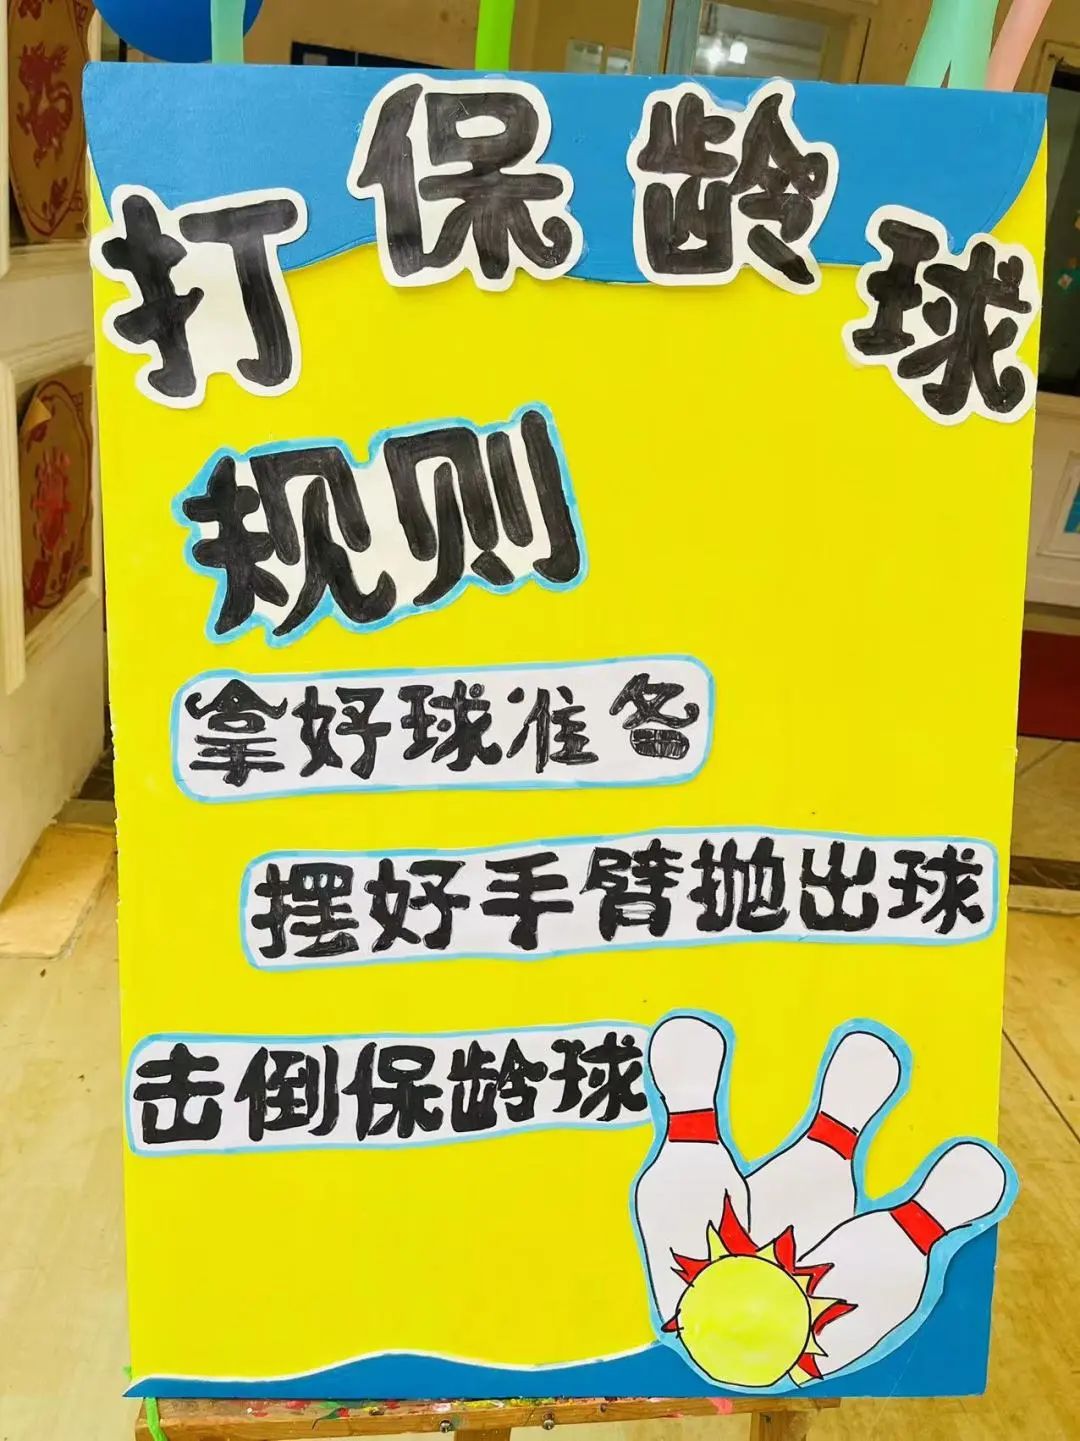 打保龄球
规则
拿好球准备
摆好手臂抛出球
击倒保龄球